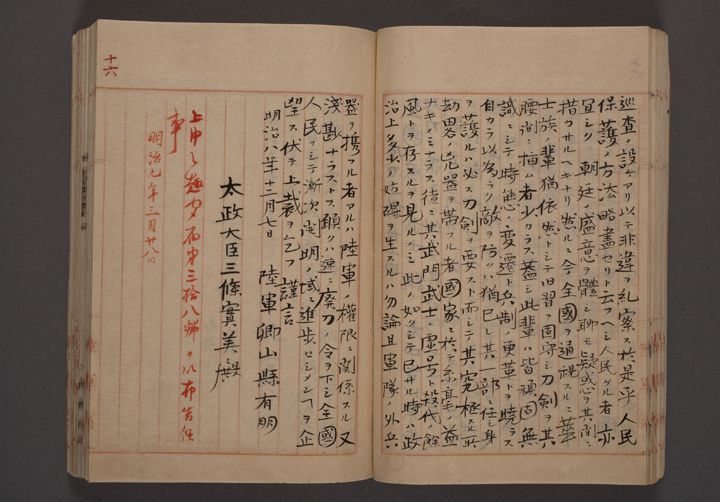 巡査ノ設ケアリ以テ非違ヲ糺察ス於是乎人民
保護ノ方法略盡セリト云フヘシ人民タル者亦
宜シク 朝廷ノ盛意ヲ體シ聊モ疑惑ヲ其間ニ
措クヘカラサルナリ然ルニ今全國ヲ通視スルニ華
士族ノ輩猶依然トシテ旧習ヲ固守シ刀劔ヲ其
腰間ニ插ム者少カラス蓋シ此輩ハ皆頑固無
識ニシテ時態ノ変遷ト兵制ノ更革トヲ曉ラス
自カラ以為ラク敵ヲ防クハ猶已レ其一部ニ任シ身
ヲ護ルハ必ス刀劔ヲ要スト而シテ其究極スル所
劫畧ノ兇器ヲ帯フル者國家ニ於テ糸毫ノ益
ナキノミナラス徒ニ其武門武士ノ虚号ト殺伐ノ餘
風トヲ存スルヲ見ルノミ此ノ如クシテ已サル時ハ政
治上多少ノ妨碍ヲ生スルハ勿論且軍隊ノ外兵
器ヲ携フル者アルハ陸軍ノ權限ニ関係スル又
淺尠ナラス願クハ速ニ廃刀ノ令ヲ下シ全國
人民ヲシテ漸次開明ノ域ニ進歩セシメンヿヲ企
望ス伏テ上裁ヲ乞フ 謹言
明治八年十二月七日 陸軍卿山縣有朋
太政大臣三條實美殿
上申之趣 第三拾八號ヲ以布告候
事
明治九年三月廿八日
十六